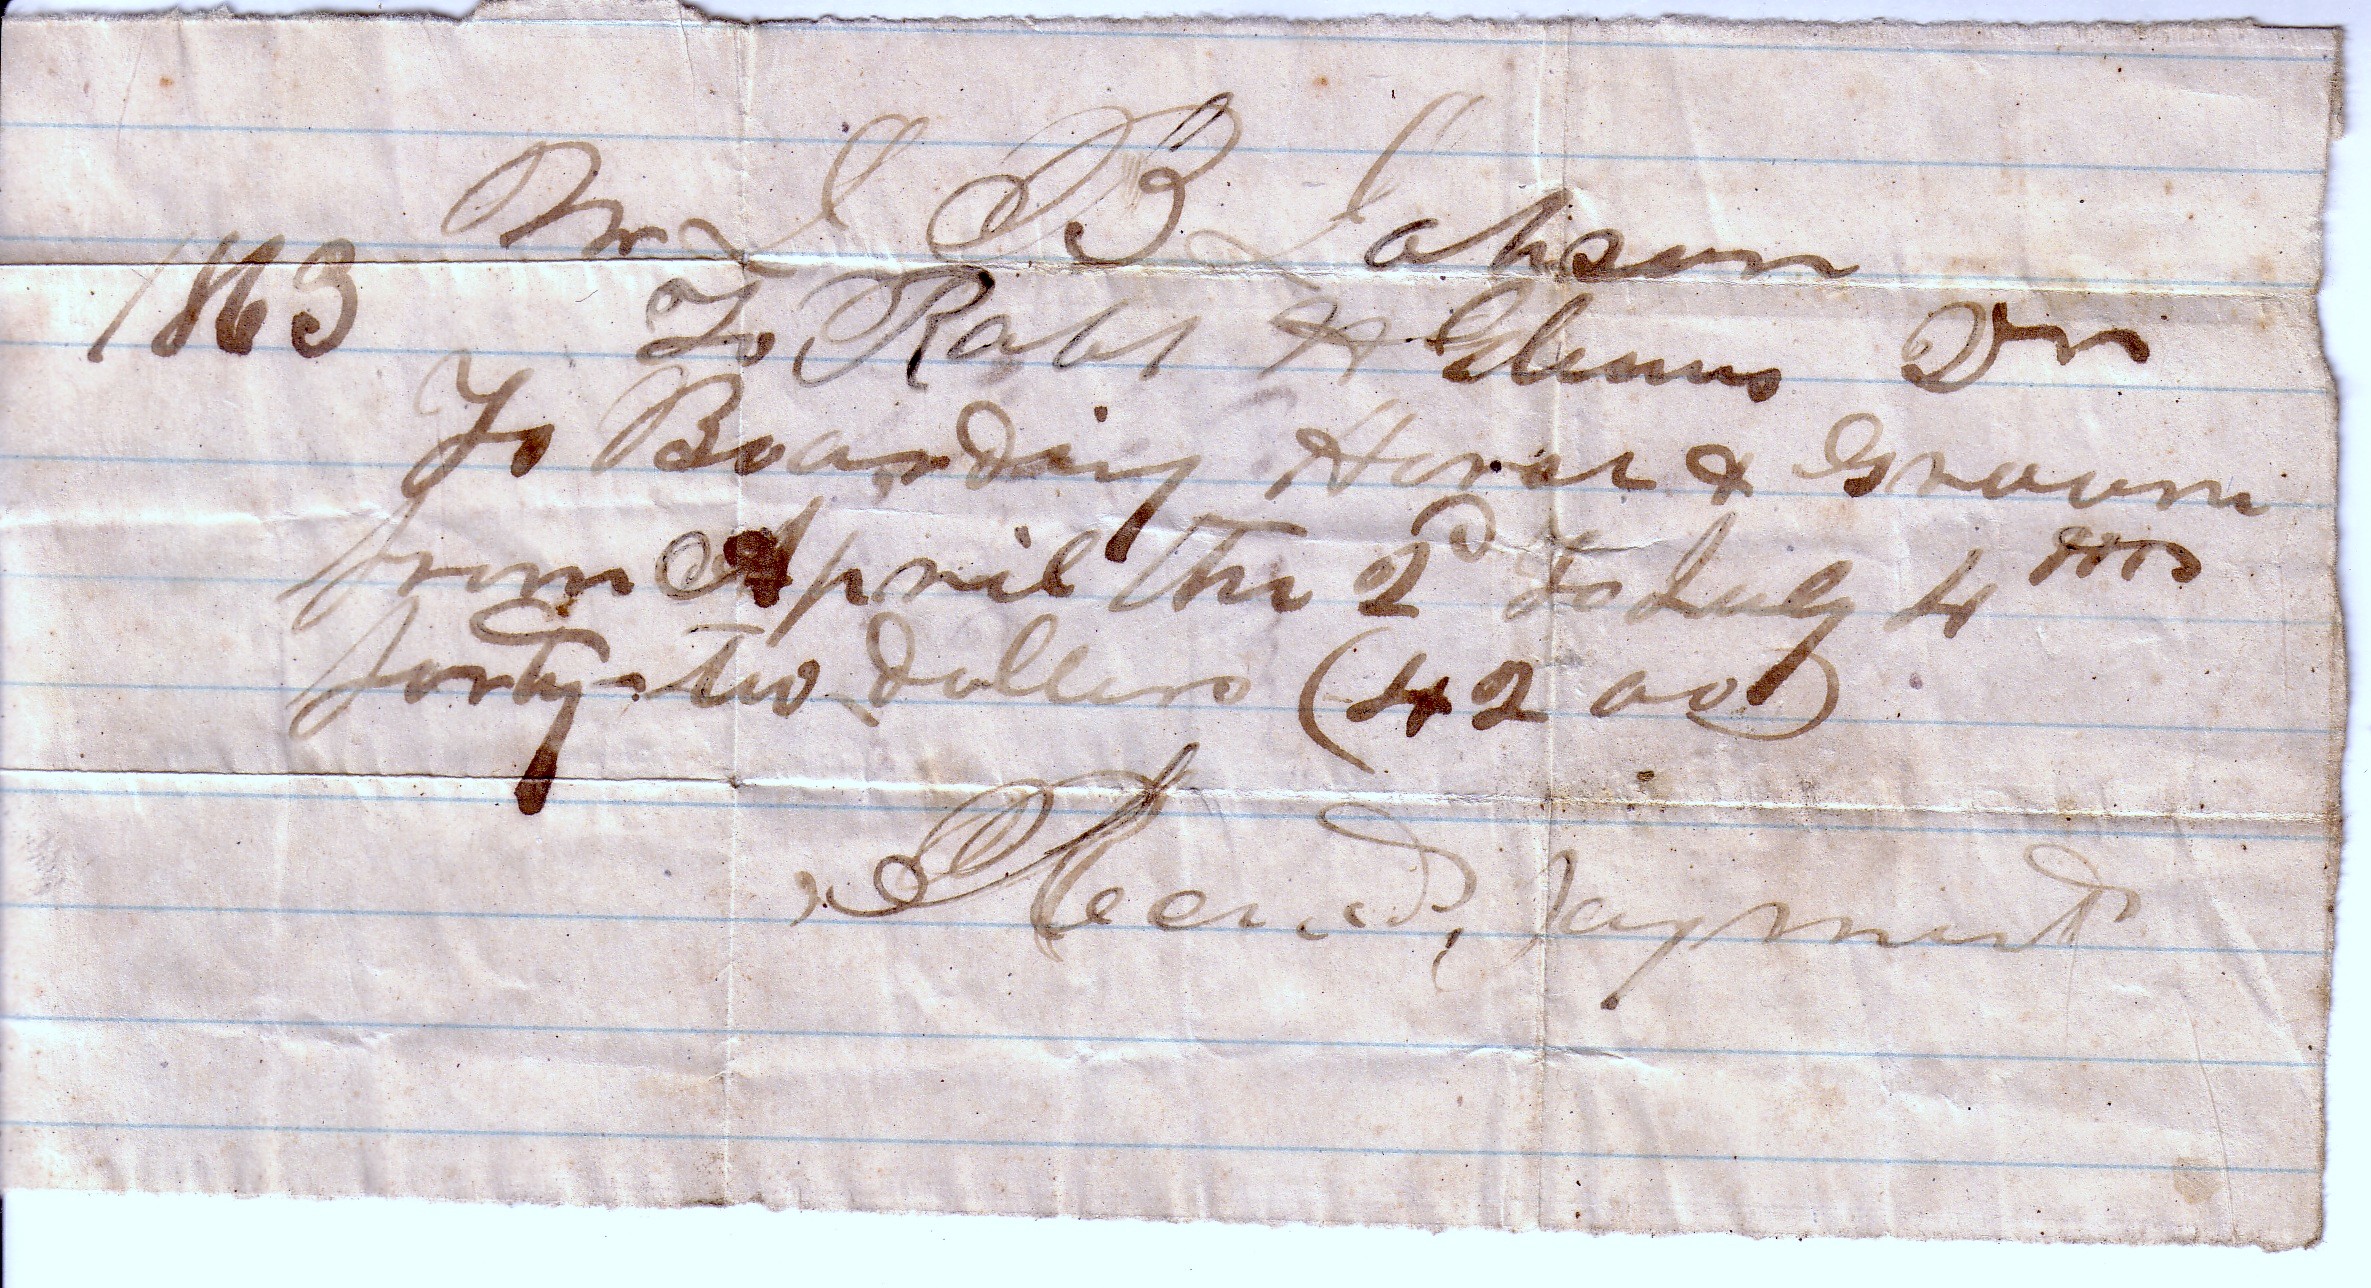 Mr L B Lahson
1863 To Rabb & Glenns Dr
To Boarding Horse & Groom
from April the 2d To July 4th
forty-two dollers (42 00)
Received payment